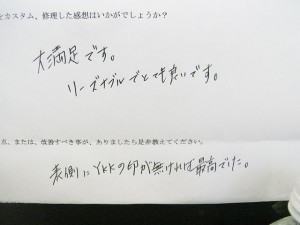 をカスタム、修理した感想はいかがでしょうか?
大満足です。
リーズナブルでとても良いです。
点、または、改善すべき事が、ありましたら是非教えてください。
表側にYKKの印が無ければ最高でした。